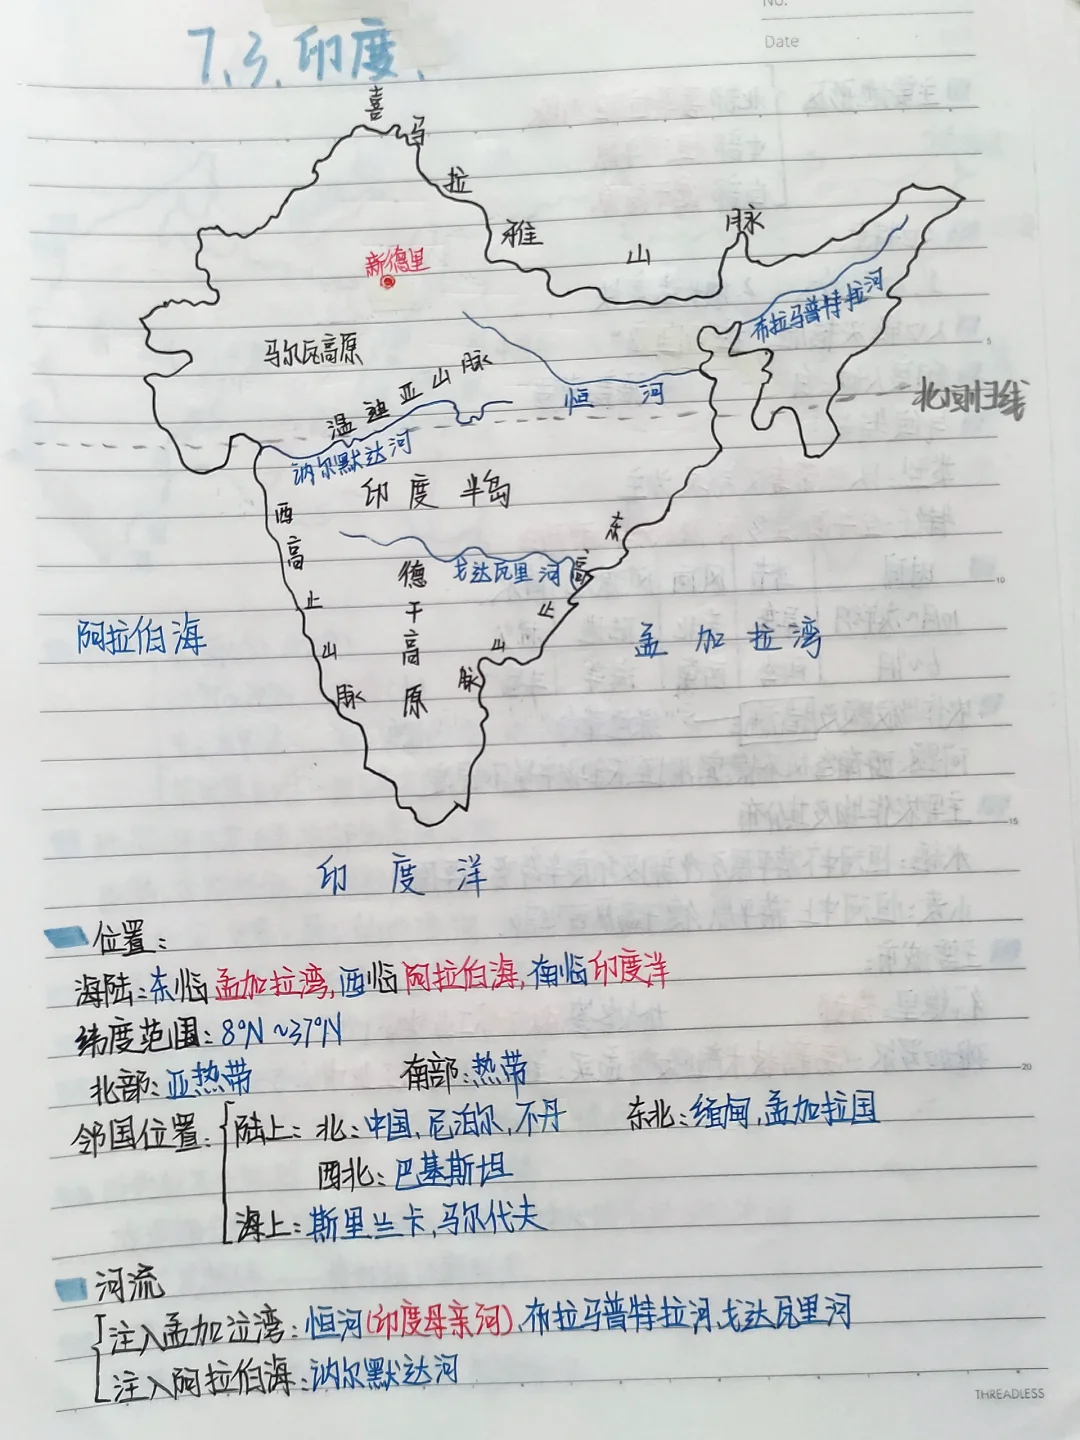 No.
Date
7.3.印度.
喜马拉雅山脉
新德里
布拉马普特拉河
马尔瓦高原
温迪亚山脉
恒河
北回归线
讷尔默达河
印度半岛
西高止山脉
东高止山脉
戈达瓦里河
德干高原
阿拉伯海
孟加拉湾
印度洋
位置:
海陆:东临孟加拉湾,西临阿拉伯海,南临印度洋
纬度范围:8°N~37°N
北部:亚热带 南部:热带
邻国位置:陆上:北:中国,尼泊尔,不丹 东北:缅甸,孟加拉国
西北:巴基斯坦
海上:斯里兰卡,马尔代夫
河流
注入孟加拉湾:恒河(印度母亲河),布拉马普特拉河,戈达瓦里河
注入阿拉伯海:讷尔默达河
5
10
15
20
THREADLESS